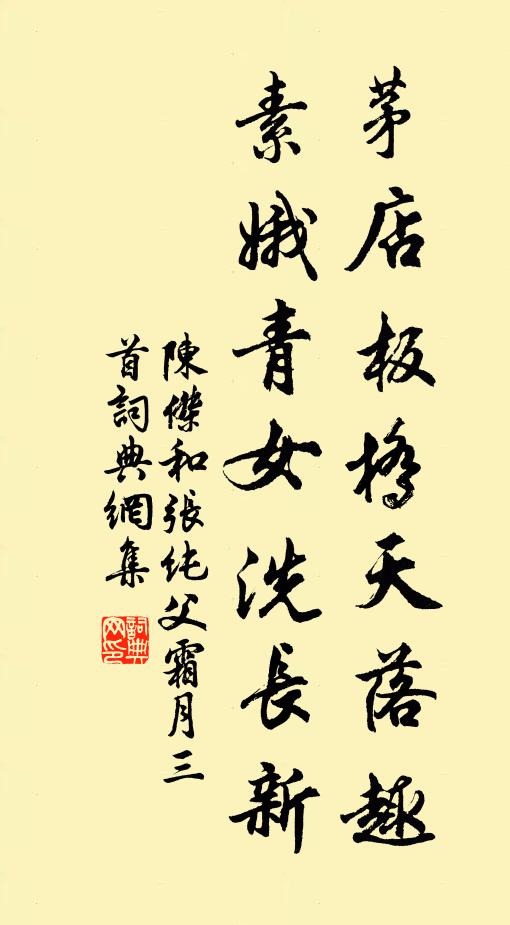 茅店板橋天落趣
素娥青女洗長新
陳傑和張純父霜月三
首詞典網集
詞典
网印